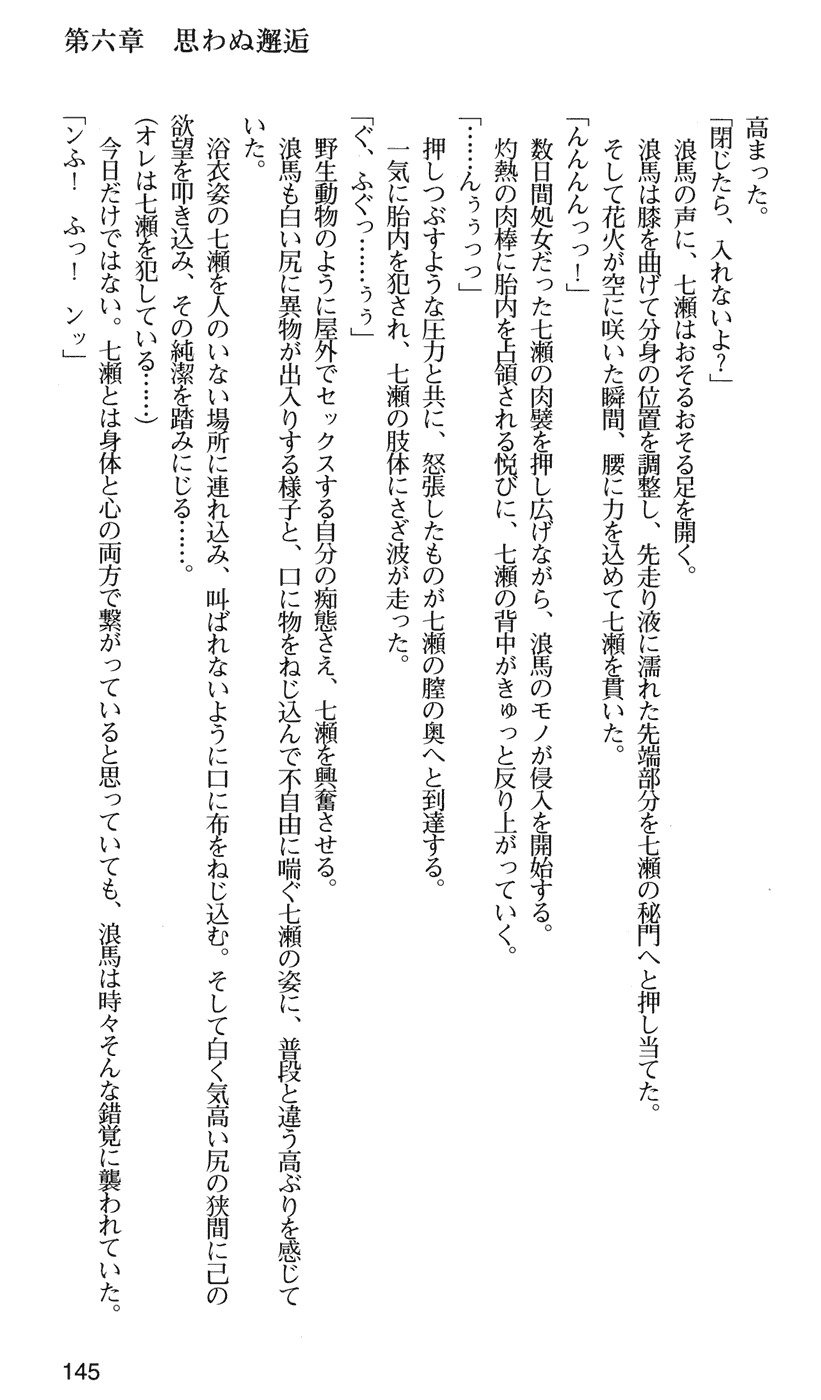 第六章　思わぬ邂逅
高まった。
「閉じたら、入れないよ？」
浪馬の声に、七瀬はおそるおそる足を開く。
浪馬は膝を曲げて分身の位置を調整し、先走り液に濡れた先端部分を七瀬の秘門へと押し当てた。
そして花火が空に咲いた瞬間、腰に力を込めて七瀬を貫いた。
「んんんんっっ！」
数日間処女だった七瀬の肉襞を押し広げながら、浪馬のモノが侵入を開始する。
灼熱の肉棒に胎内を占領される悦びに、七瀬の背中がきゅっと反り上がっていく。
「……んぅぅっっ」
押しつぶすような圧力と共に、怒張したものが七瀬の膣の奥へと到達する。
一気に胎内を犯され、七瀬の肢体にさざ波が走った。
「ぐ、ふぐっ……ぅぅ」
野生動物のように屋外でセックスする自分の痴態さえ、七瀬を興奮させる。
浪馬も白い尻に異物が出入りする様子と、口に物をねじ込んで不自由に喘ぐ七瀬の姿に、普段と違う高ぶりを感じて
いた。
浴衣姿の七瀬を人のいない場所に連れ込み、叫ばれないように口に布をねじ込む。そして白く気高い尻の狭間に己の
欲望を叩き込み、その純潔を踏みにじる……。
（オレは七瀬を犯している……）
今日だけではない。七瀬とは身体と心の両方で繋がっていると思っていても、浪馬は時々そんな錯覚に襲われていた。
「ンふ！　ふっ！　ンッ」
145